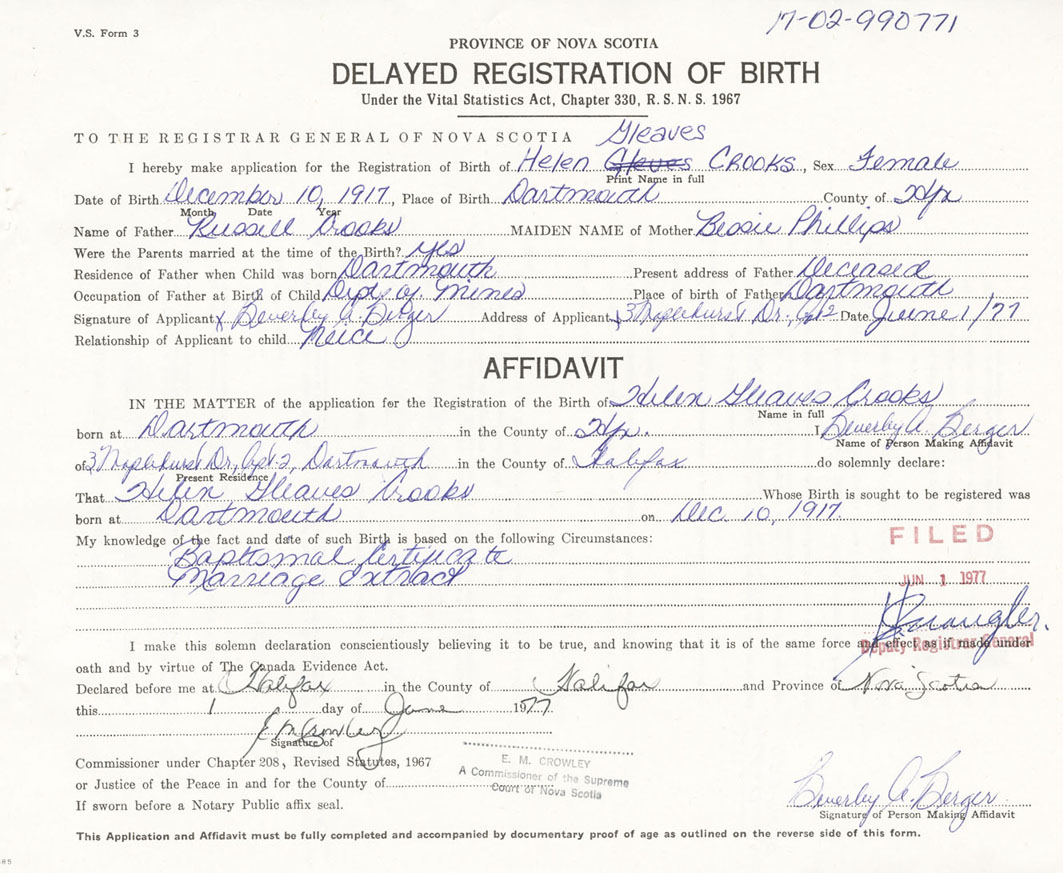 17-02-990771
V.S. Form 3
PROVINCE OF NOVA SCOTIA
DELAYED REGISTRATION OF BIRTH
Under the Vital Statistics Act, Chapter 330, R. S. N. S. 1967
TO THE REGISTRAR GENERAL OF NOVA SCOTIA
Gleaves
I hereby make application for the Registration of Birth of Helen Gleves CROOKS, Sex Female
Print Name in full
Date of Birth December 10, 1917, Place of Birth Dartmouth County of Hfx
Month Date Year
Name of Father Russell Crooks MAIDEN NAME of Mother Bessie Phillips
Were the Parents married at the time of the Birth? yes
Residence of Father when Child was born Dartmouth Present address of Father Deceased
Occupation of Father at Birth of Child Dept. of Mines Place of birth of Father Dartmouth
Signature of Applicant x Beverley A. Berger Address of Applicant 3 Maplehurst Dr., Apt 2 Date June 1/77
Relationship of Applicant to child Neice
AFFIDAVIT
IN THE MATTER of the application for the Registration of the Birth of Helen Gleaves Crooks
Name in full
born at Dartmouth in the County of Hfx. I Beverley A. Berger
Name of Person Making Affidavit
of 3 Maplehurst Dr, Apt-2, Dartmouth in the County of Halifax do solemnly declare:
Present Residence
That Helen Gleaves Crooks Whose Birth is sought to be registered was
born at Dartmouth on Dec. 10, 1917
My knowledge of the fact and date of such Birth is based on the following Circumstances:
Baptismal Certificate
Marriage Extract
FILED
JUN 1 1977
Deputy Registrar General
I make this solemn declaration conscientiously believing it to be true, and knowing that it is of the same force and effect as if made under
oath and by virtue of The Canada Evidence Act.
Declared before me at Halifax in the County of Halifax and Province of Nova Scotia
this 1 day of June 1977
E M Crowley
Signature of
Commissioner under Chapter 208, Revised Statutes, 1967
or Justice of the Peace in and for the County of
If sworn before a Notary Public affix seal.
E. M. CROWLEY
A Commissioner of the Supreme
Court of Nova Scotia
Beverley A. Berger
Signature of Person Making Affidavit
This Application and Affidavit must be fully completed and accompanied by documentary proof of age as outlined on the reverse side of this form.